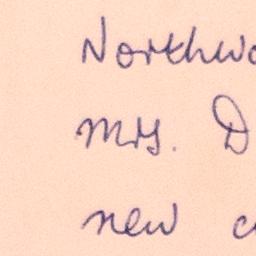 Northwo
Mrs. D
new c